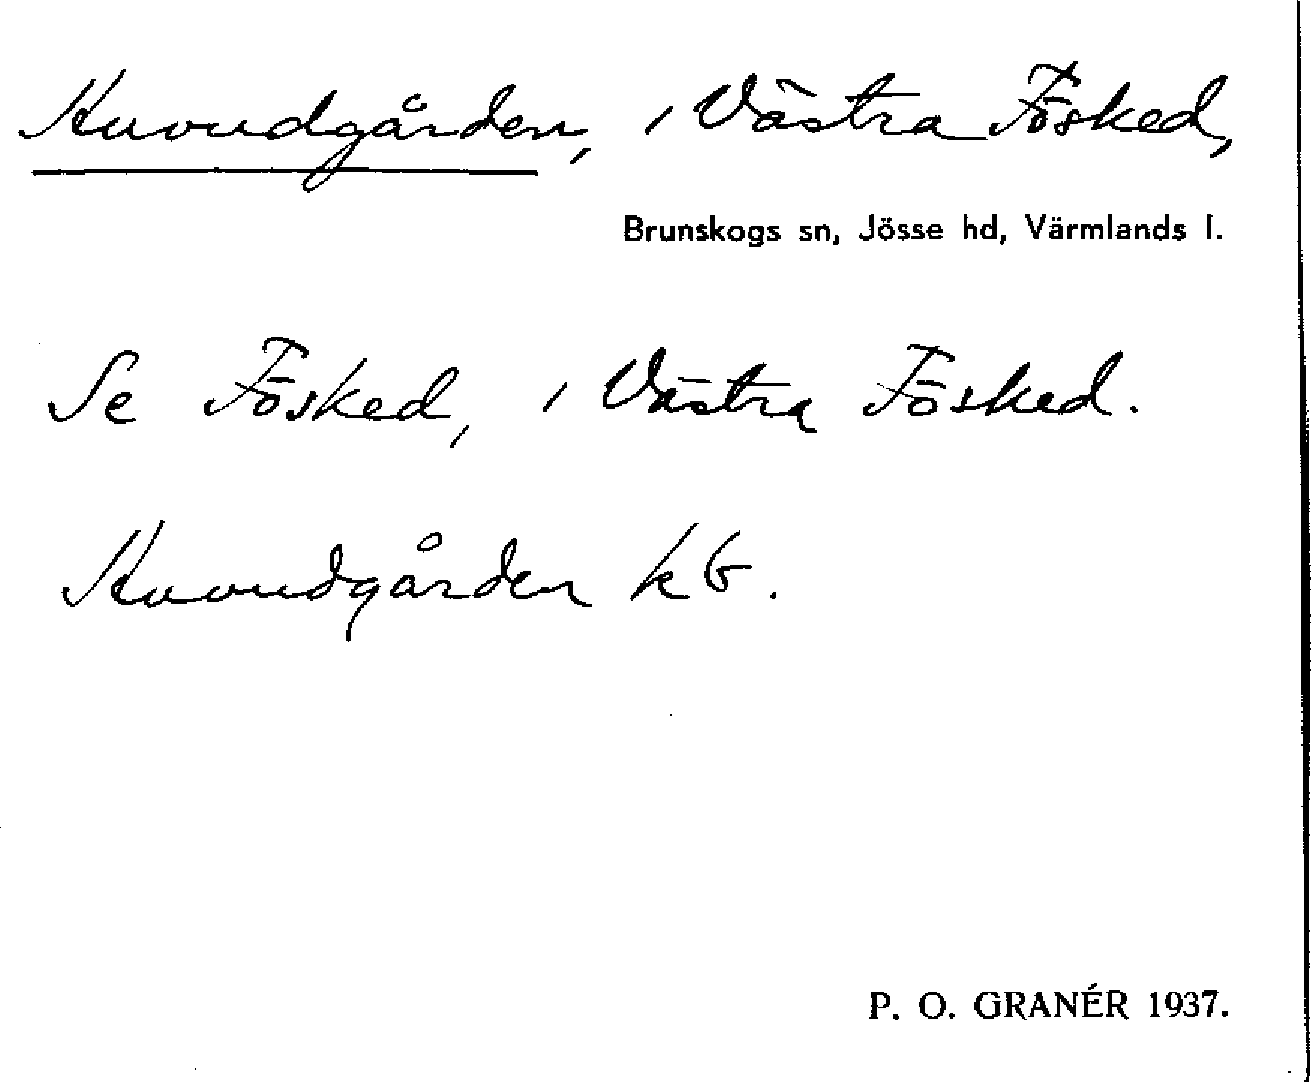 Huvudgården, i Västra Fösked,
Brunskogs sn, Jösse hd, Värmlands l.
Se Fösked, i Västra Fösked.
Huvudgården kb.
P. O. GRANÉR 1937.